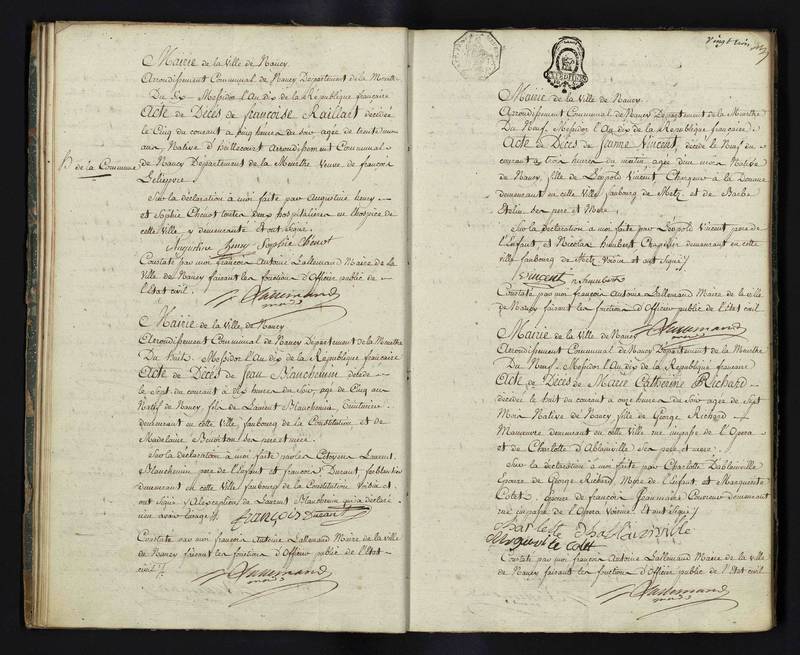 Mairie de la Ville de Nancy
Arrondissement Communal de Nancy Departement de la Meurthe
Du Six Messidor l'An dix de la République française
Acte de Décès de françoise Raillart décédée
le Cinq du courant a cinq heures du soir, agée de trente
ans, Native d' arrondissement Communal
de Nancy Departement de la Meurthe Veuve de françois
B de la Commune
Sur la déclaration à moi faite par Augustine henry
et Sophie Chenot toutes deux hospitalières en l'hospice de
cette Ville y demeurante et ont signé
Augustine henry Sophie Chenot
Constaté par moi françois Antoine Lallemand Maire de la
Ville de Nancy faisant les fonction d'Officier public de
l'Etat civil.
Lallemand
Mairie de la Ville de Nancy
Arrondissement Communal de Nancy Departement de la Meurthe
Du huit Messidor l'An dix de la République française
Acte de Décès de Jean Blanchemin décédé
le Sept du courant à dix heures du Soir, agé de Cinq ans
Natif de Nancy, fils de Laurent Blanchemin
demeurant en cette Ville, faubourg de la Constitution et de
Madelaine ses pere et mere
Sur la déclaration à moi faite par les Citoyens Laurent
Blanchemin pere de l'Enfant et françois Durant ferblantier
demeurant en cette Ville faubourg de la Constitution Voisin et
ont signé à l'exception de Laurent Blanchemin qui a déclaré
françois Durant
Constaté par moi françois Antoine Lallemand Maire de la ville
de Nancy faisant les fonction d'Officier public de l'Etat
civil
Lallemand
Vingt trois
Mairie de la Ville de Nancy
Arrondissement Communal de Nancy Departement de la Meurthe
Du Neuf Messidor l'An dix de la République française
Acte de Décès de Jeanne Vincent, décédée le Neuf du
courant a trois heures du matin, agée d'un mois Native
de Nancy, fille de Léopold Vincent Chargeur à la Douane
demeurant en cette Ville faubourg de Metz et de Barbe
ses pere et Mere
Sur la déclaration à moi faite par Léopold Vincent pere de
l'Enfant et Nicolas humbert Chapelier demeurant en cette
ville faubourg de Metz Voisin et ont signé
Vincent n humbert
Constaté par moi françois Antoine Lallemand Maire de la ville
de Nancy faisant les fonction d'Officier public de l'état civil
Lallemand
Mairie de la Ville de Nancy
Arrondissement Communal de Nancy Departement de la Meurthe
Du Neuf Messidor l'An dix de la République française
Acte de Décès de Marie Catherine Richard
décédée le huit du courant à onze heures du Soir agée de Sept
Mois Native de Nancy fille de George Richard
Manoeuvre demeurant en cette Ville rue impasse de l'Opera
et de Charlotte d'Ablainville Ses pere et mere
Sur la déclaration à moi faite par Charlotte Dablainville
Epouse de George Richard, Mere de l'Enfant et Marguerite
Colet Epouse de françois Couvreur demeurant
rue impasse de l'Opera Voisine Et ont Signé
Charlotte dhablainville
Colet
Constaté par moi françois Antoine Lallemand Maire de la Ville
de Nancy faisant les fonction d'Officier public de l'Etat civil
Lallemand